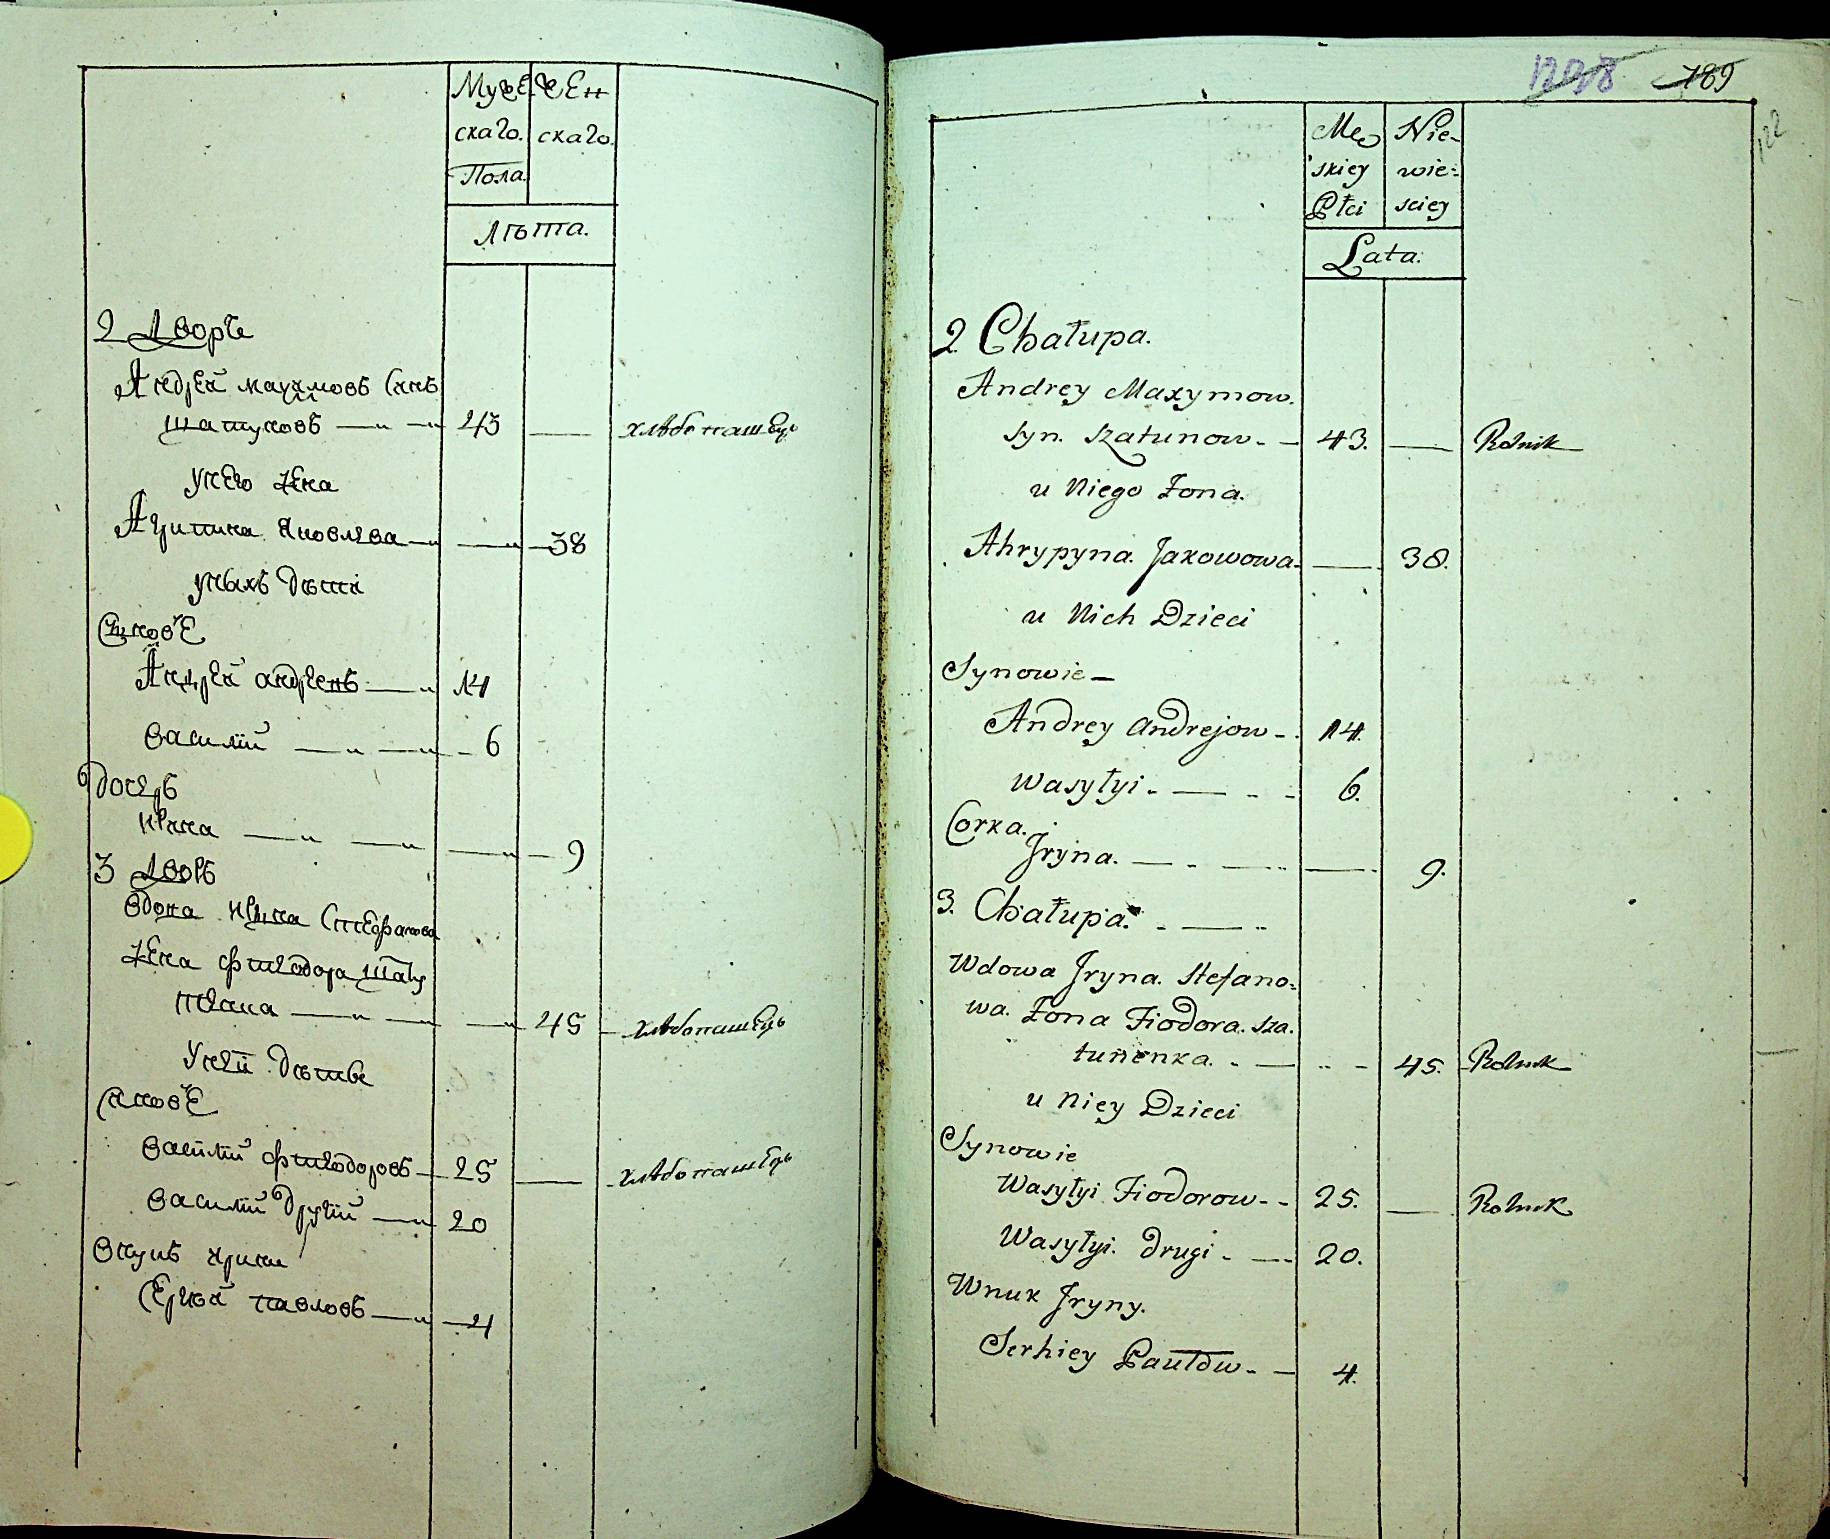 Мужe- Жен
скаго. скаго.
Пола.
Лѣта.
2 Дворъ
Андрей маѯимовъ Синъ
шатуновъ 43 — хлѣбопашецъ
унего жена
Агрипина Яковлева — 38
унихъ дѣти
Синовѣ
Андрей андреевъ 14
василий 6
дочеръ
ирина — 9
3 Дворъ
вдова ирина Стефанова
жена фтеодора Шату
ненка — 45 хлѣбопашецъ
Унеи дѣти
Синовѣ
василий фтеодоровъ 25 — хлѣбопашецъ
василий другий 20
внукъ ирини
Сергий павловъ 4
1208 789
122
Mę Nie-
skiey wie-
Płci sciey
Lata.
2 Chałupa.
Andrey Maxymow.
syn. Szatunow. 43. — Rolnik
u Niego Żona.
Ahrypyna. Jakowowa — 38.
u Nich Dzieci
Synowie —
Andrey Andrejow 14.
Wasyłyi 6.
Corka.
Jryna. — 9.
3. Chałupa.
Wdowa Jryna. Stefano-
wa. Żona Fiodora. Sza.
tunenka. — 45. Rolnik
u Niey Dzieci
Synowie
Wasyłyi Fiodorow 25. — Rolnik
Wasyłyi. drugi 20.
Wnuk Jryny.
Serhiey Pawłow 4.